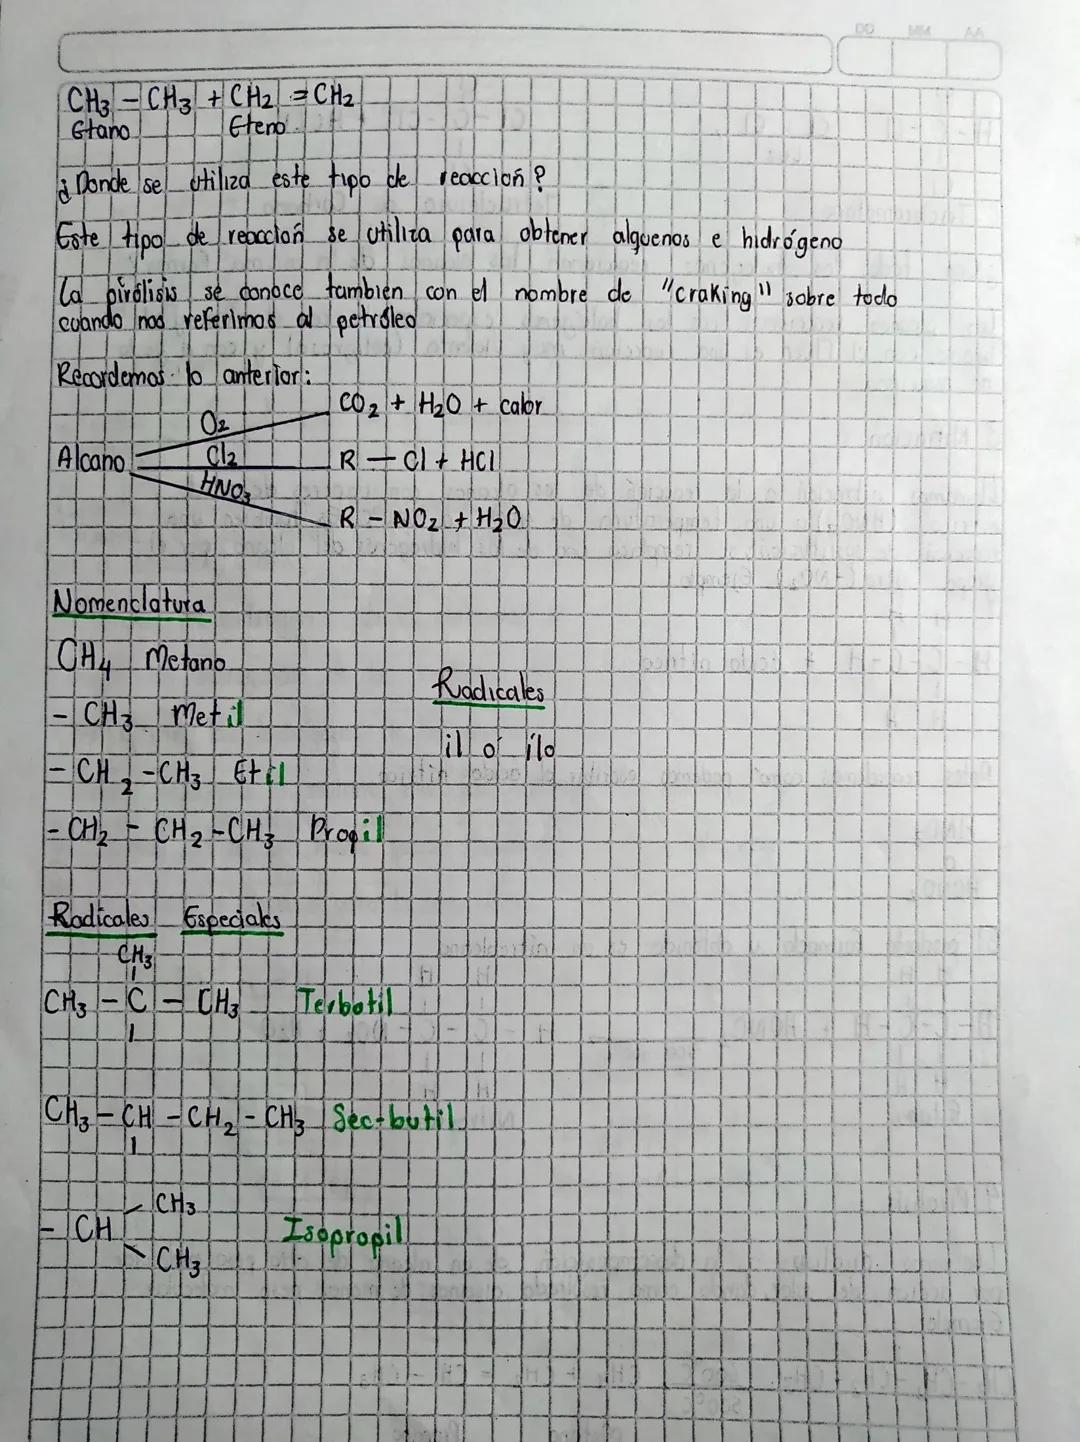 DD MM AA
CH₃ - CH₃ + CH₂ = CH₂
Etano Eteno
¿Donde se utiliza este tipo de reacción?
Este tipo de reacción se utiliza para obtener alquenos e hidrógeno
La pirólisis se conoce también con el nombre de "craking" sobre todo
cuando nos referimos al petróleo
Recordemos lo anterior:
O₂ CO₂ + H₂O + calor
Alcano Cl₂ R - Cl + HCl
HNO₃ R - NO₂ + H₂O
Nomenclatura
CH₄ Metano
Radicales
- CH₃ Metil
il o ilo
- CH₂ - CH₃ Etil
- CH₂ - CH₂ - CH₃ Propil
Radicales Especiales
CH₃
CH₃ - C - CH₃ Terbotil
CH₃ - CH - CH₂ - CH₃ Sec-butil
CH₃
- CH Isopropil
CH₃